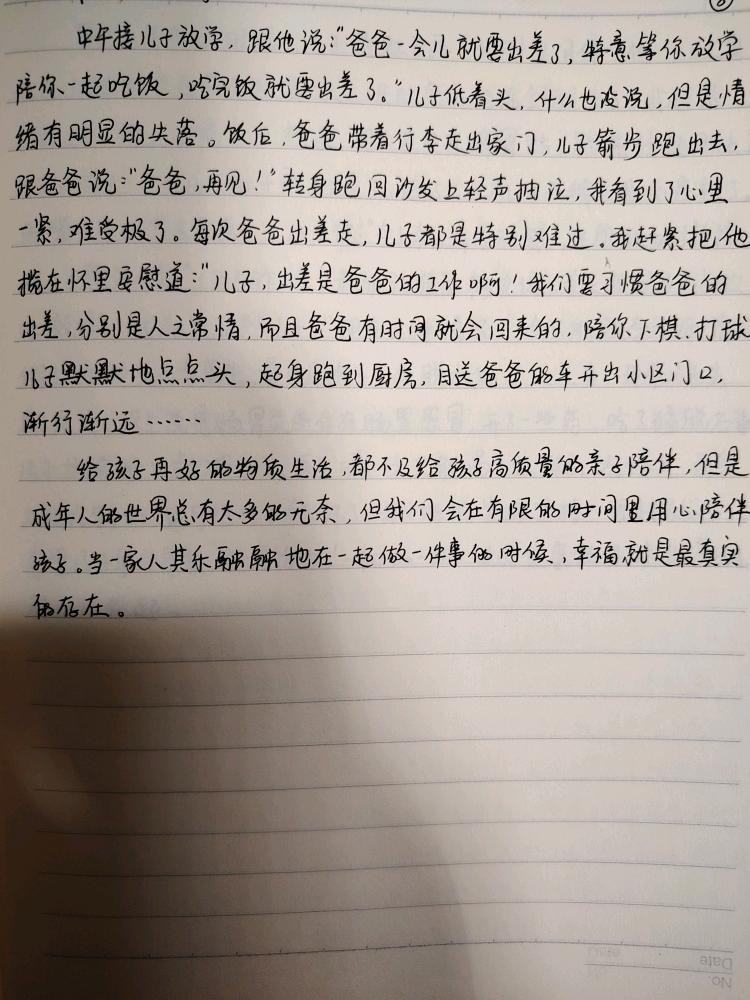 ⑥
中午接儿子放学，跟他说：“爸爸一会儿就要出差了，特意等你放学
陪你一起吃饭，吃完饭就要出差了。”儿子低着头，什么也没说，但是情
绪有明显的失落。饭后，爸爸带着行李走出家门，儿子箭步跑出去，
跟爸爸说：“爸爸，再见！”转身跑回沙发上轻声抽泣，我看到了心里
一紧，难受极了。每次爸爸出差走，儿子都是特别难过。我赶紧把他
揽在怀里安慰道：“儿子，出差是爸爸的工作啊！我们要习惯爸爸的
出差，分别是人之常情，而且爸爸有时间就会回来的，陪你下棋、打球
儿子默默地点点头，起身跑到厨房，目送爸爸的车开出小区门口，
渐行渐远……
给孩子再好的物质生活，都不及给孩子高质量的亲子陪伴，但是
成年人的世界总有太多的无奈，但我们会在有限的时间里用心陪伴
孩子。当一家人其乐融融地在一起做一件事的时候，幸福就是最真实
的存在。
Date
No